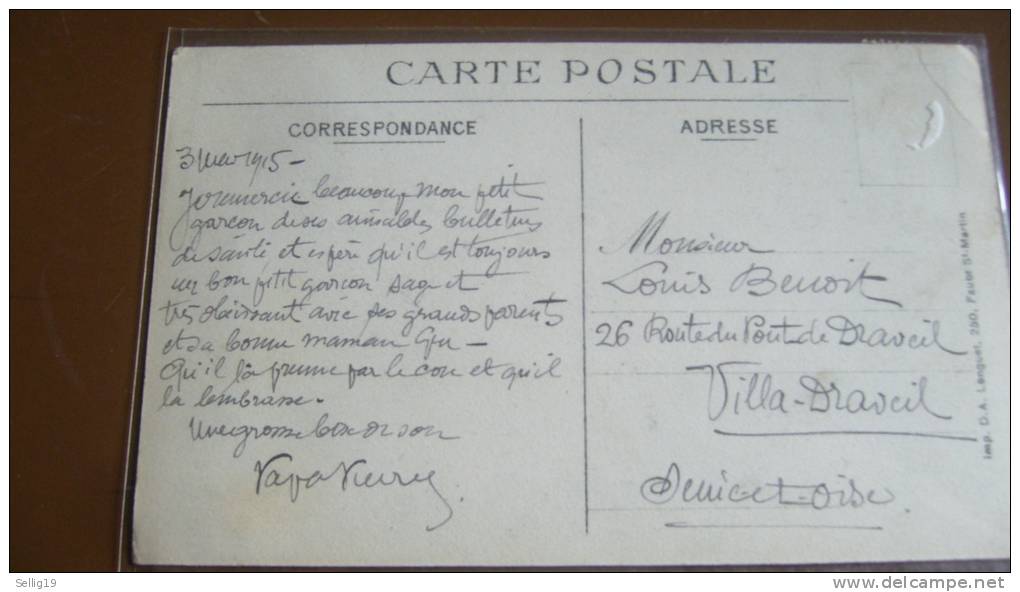 CARTE POSTALE
CORRESPONDANCE
ADRESSE
3 1915 -
Je remercie beaucoup mon petit
garçon de ses aimables bulletins
de santé et espère qu'il est toujours
un bon petit garçon sage et
très obéissant avec ses grands parents
et sa bonne maman
Qu'il la prenne par le cou et qu'il
la l'embrasse.
Une grosse bise de son
Papa
Monsieur
Louis Benoit
26 Route du Pont de Draveil
Villa-Draveil
Seine-et-Oise.
Imp. D.A. Longuet, 250, Faubg St-Martin
Sellig19
www.delcampe.net